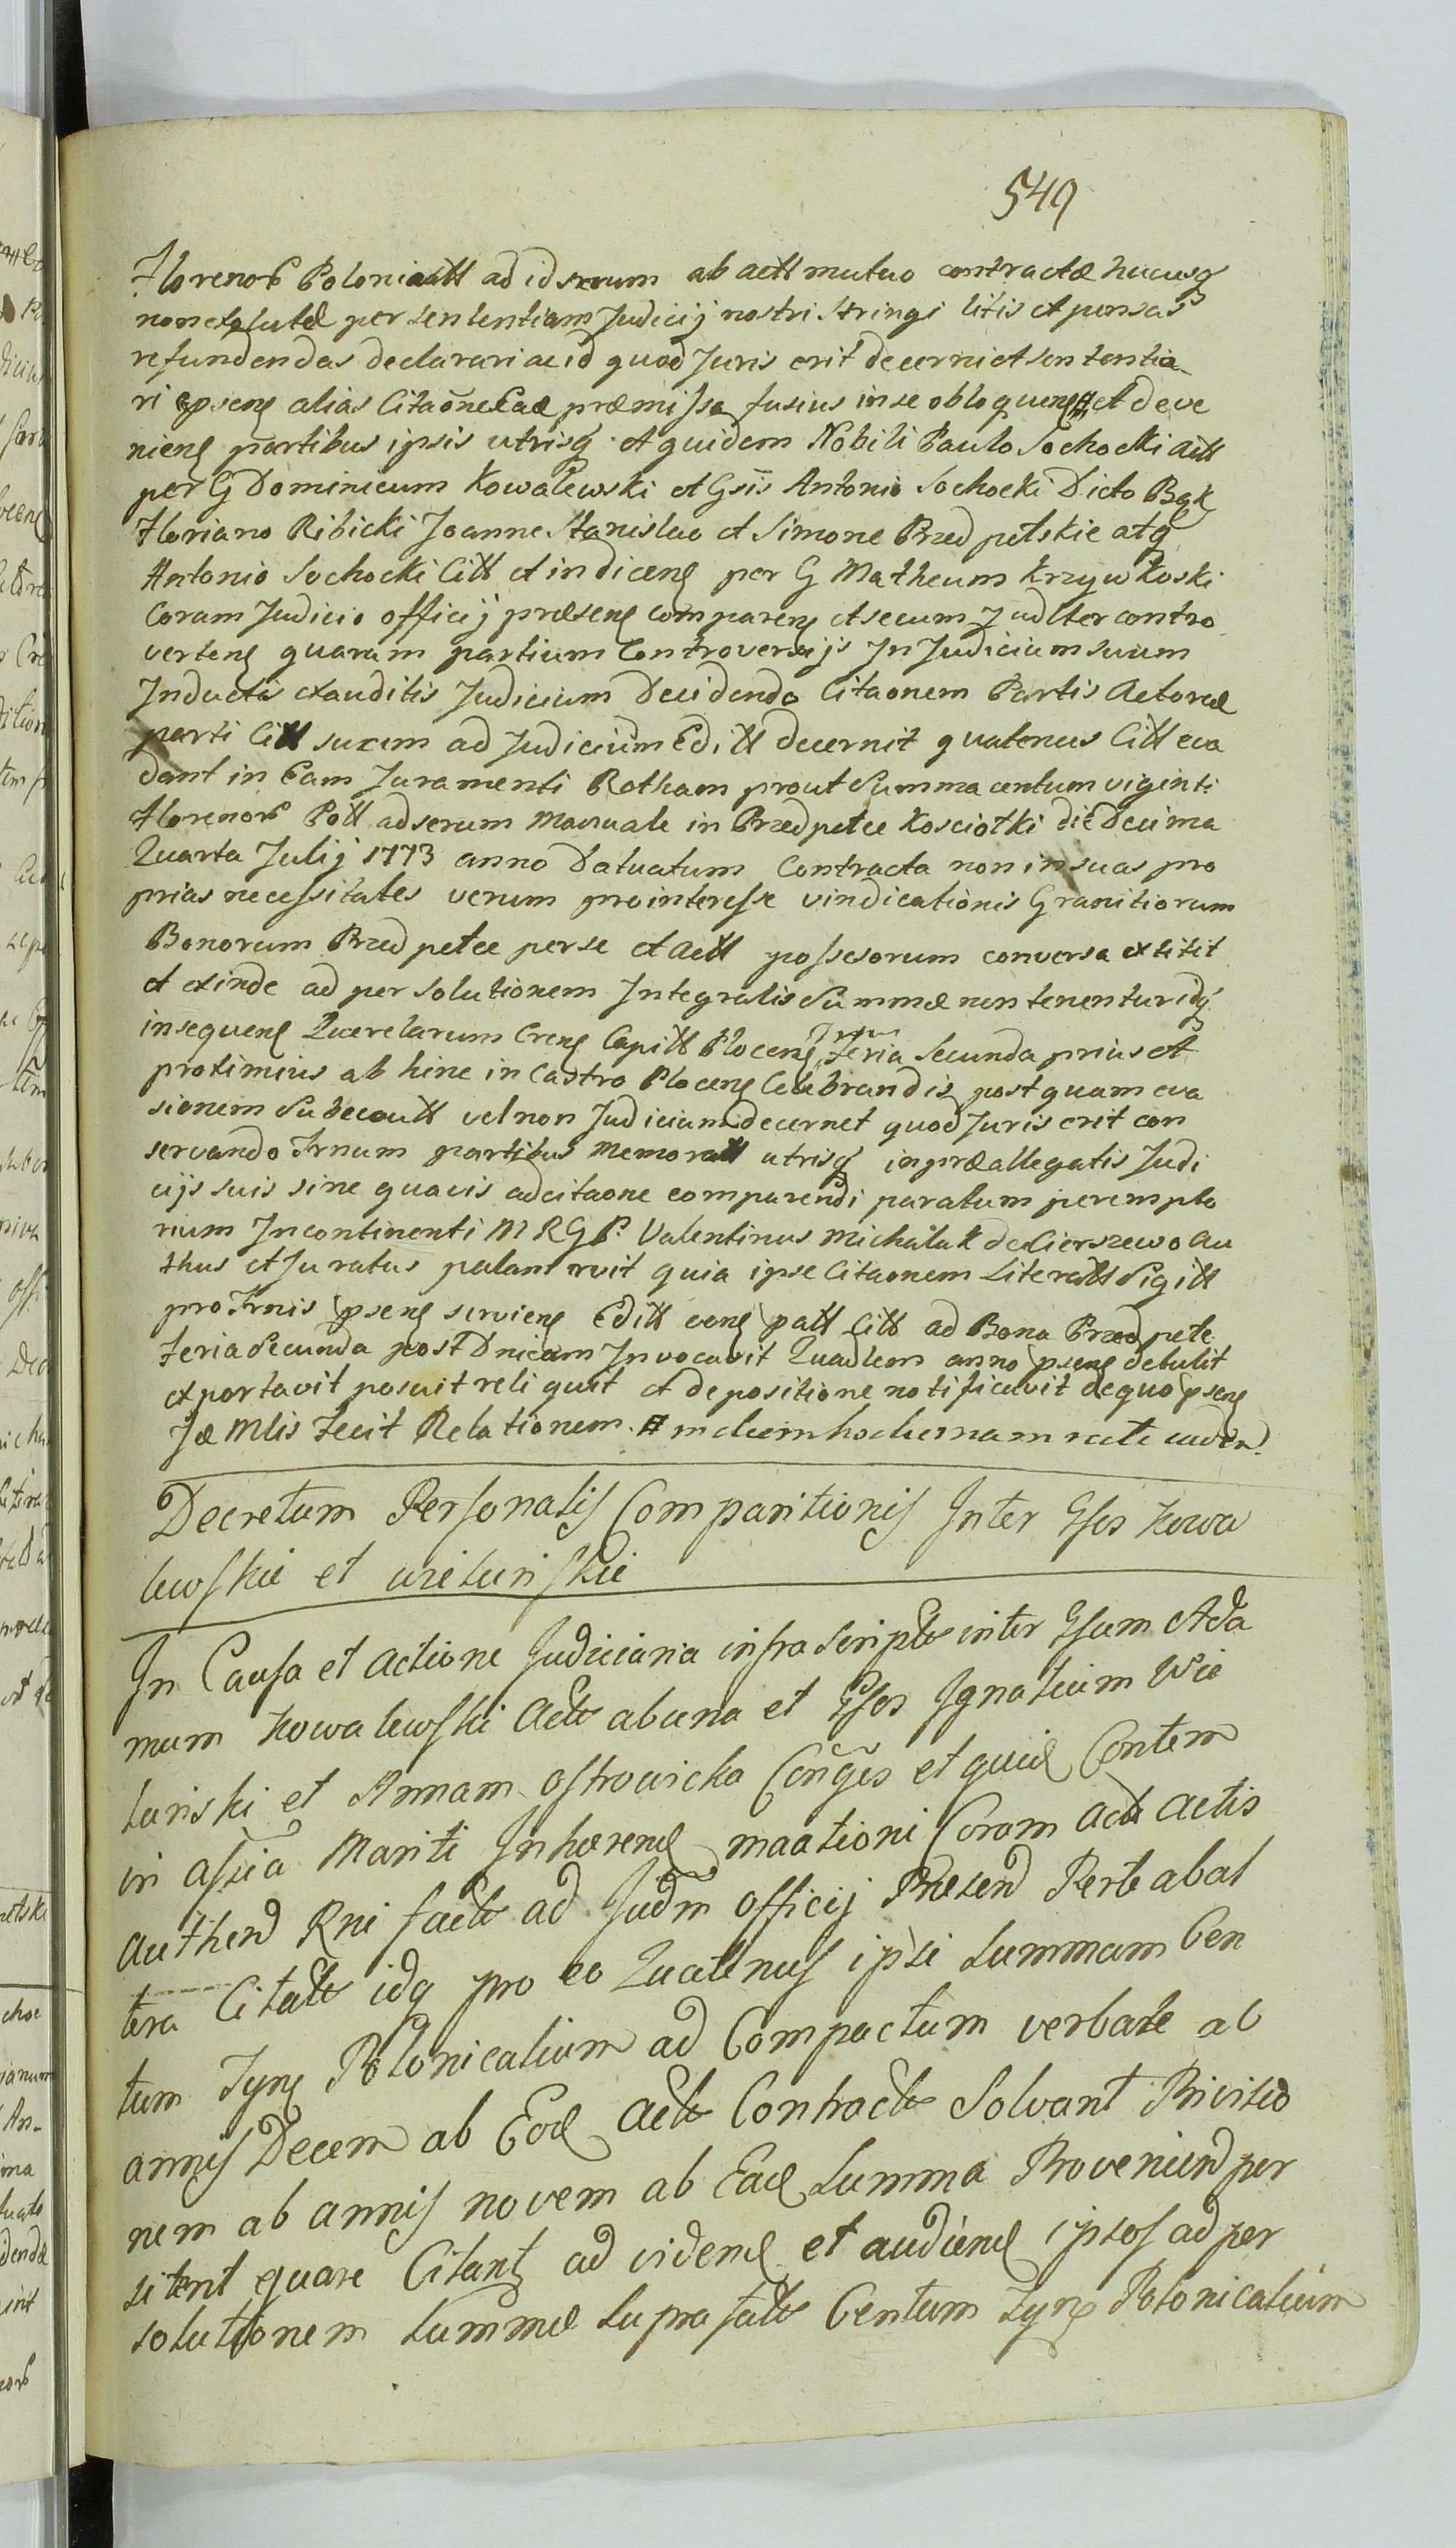 549
Florenor Polonicall ad id serum ab actt mutuo contractæ hucusq
non exolutæ per sententiam Judicij nostri stringi litis et pensas
refundendas declarari ac id quod Juris erit decerni et sententia
ri psens alias Citaõne Eaę præmissa fusius in se obloquens et deve
niens partibus ipsis utrisq et quidem Nobili Paulo Sochocki Actt
per G Dominicum Kowalewski et Gsis Antonio Sochocki Dicto Bąk
Floriano Ribicki Joanne Stanislao et Simone Przedpełskie atq
Antonio Sochocki Citt et indicens per G Matheum Krzywkoski
Coram Judicio officij præsens comparens et secum Judlter contro
vertens quarum partium Controversijs In Judicium suum
Inductis exauditis Judicium Decidendo Citaonem Partis Actoreæ
parti Citt suxum ad Judicium Editt decernit quatenus Citt eva
dant in Eam Juramenti Rotham prout Summa centum viginti
Florenor Poll ad serum Manuale in Przedpełce Kosciołki die Decima
Quarta Julij 1773 anno Datuatum Contracta non in suas pro
prias necessitates verum pro interesse vindicationis Granitiorum
Bonorum Przedpełce per se et Actt possesorum conversa extitit
et exinde ad per solutionem Integralis Summæ non tenentur idq
in sequens Querelarum Crens Capitt Plocens Feria Secunda prius et
proximius ab hinc in Castro Plocens Celebrandis post quam eva
sionem Subecutt vel non Judicium decernet quod Juris erit con
servando Trnum partibus Memoratt utrisq in præallegatis Judi
cijs suis sine quavis adcitaone comparendi paratum perempto
rium Incontinenti M R G P. Valentinus Michalak de Cierszewo Au
thus et Juratus palam rvit quia ipse Citaonem Literatt Sigitt
pro Trnis psens serviens Editt cons patt Citt ad Bona Przedpełce
Feria Secunda post Dnicam Invocavit Quadlem anno psens detulit
exportavit posuit reliquit et depositione notificavit de quo psens
Jæ Mlis Fecit Relationem # in diem hodiernam rite
Decretum Personalis Comparitionis Inter Gsos Kowa
lewskie et Wieluńskie
In Causa et Actione Judiciaria infrascripta inter Gsum Ada
mum Kowalewski Actt ab una et Gsos Ignatium Wie
luński et Annam Ostrowicka Conges et quid Contem
in assia Mariti Inhærend maationi Coram Actt Actis
Authend Rni fact ad Judm Officij Præsend Parte ab al
tera Citatt idq pro eo Quatenus ipsi Summam Cen
tum Tynf Polonicalium ad Compactum verbale ab
annis Decem ab Eod Actt Contractt Solvant Privisio
nem ab annis novem ab Ead Summa Proveniend per
sitent quare Citant ad videnđ et audienđ ipsos ad per
solutionem Summæ Suprafatt Centum Tynf Polonicalium